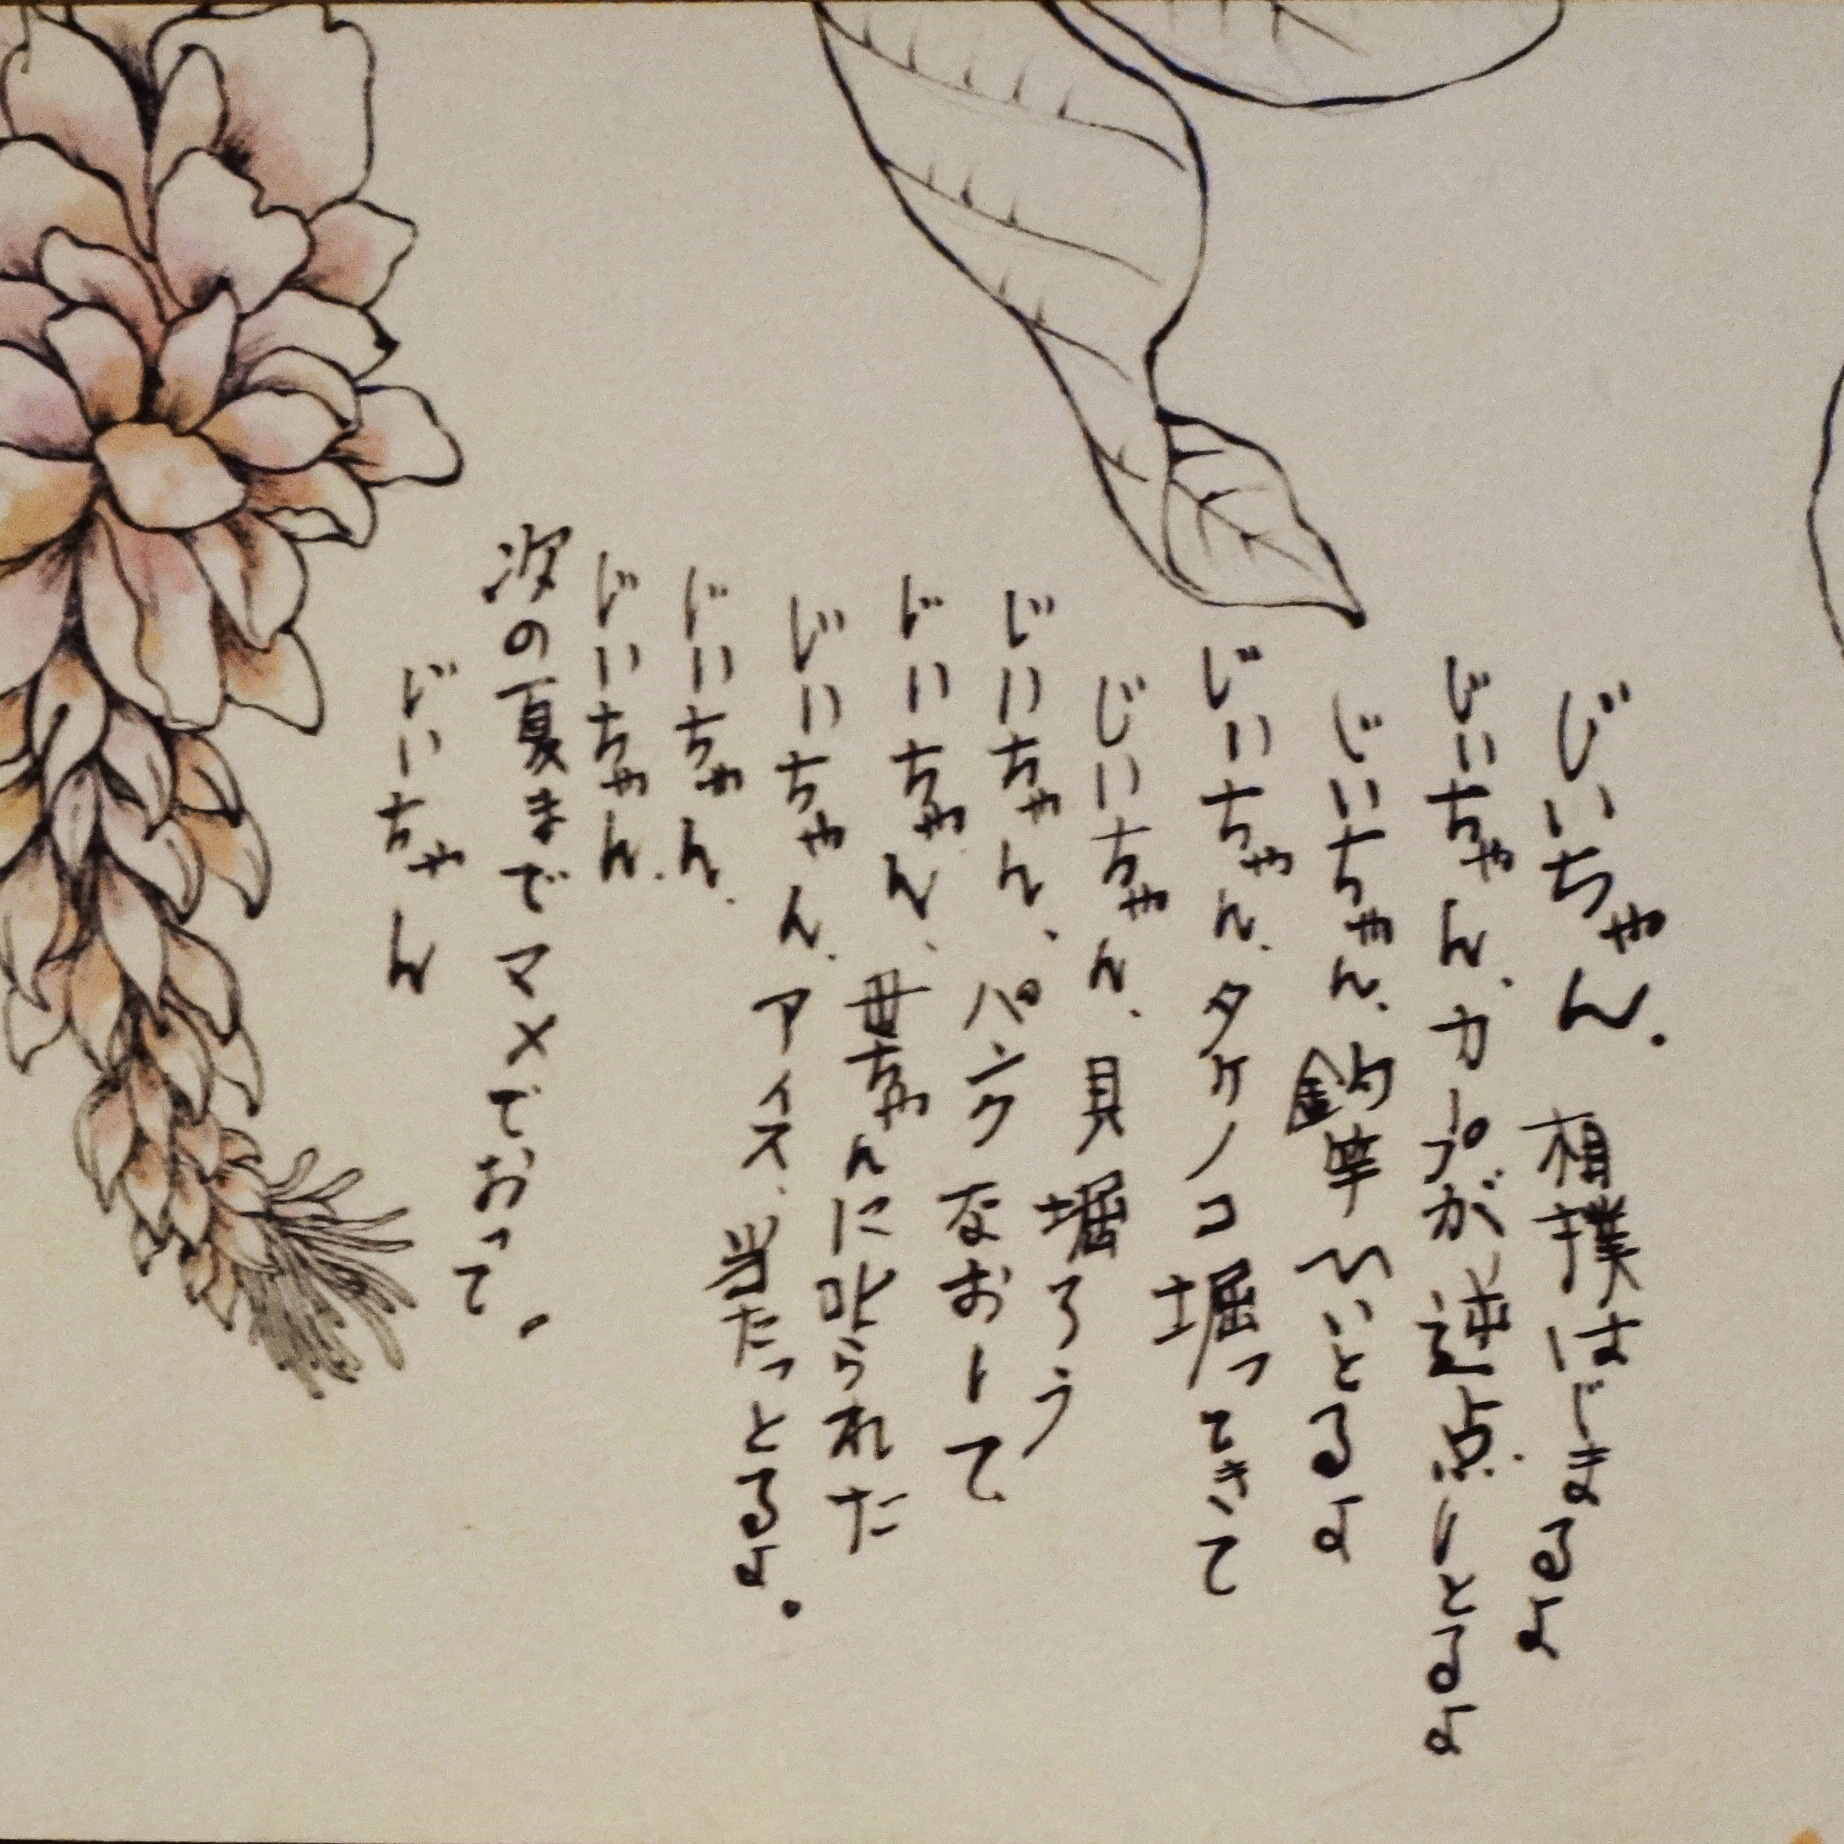 じいちゃん、相撲はじまるよ
じいちゃん、カープが逆点しとるよ
じいちゃん、釣竿ひいとるよ
じいちゃん、タケノコ堀ってきて
じいちゃん、貝堀ろう
じいちゃん、パンクなおして
じいちゃん、母ちゃんに叱られた
じいちゃん、アイス、当たっとるよ。
じいちゃん、
じいちゃん、
次の夏までマメでおって。
じいちゃん